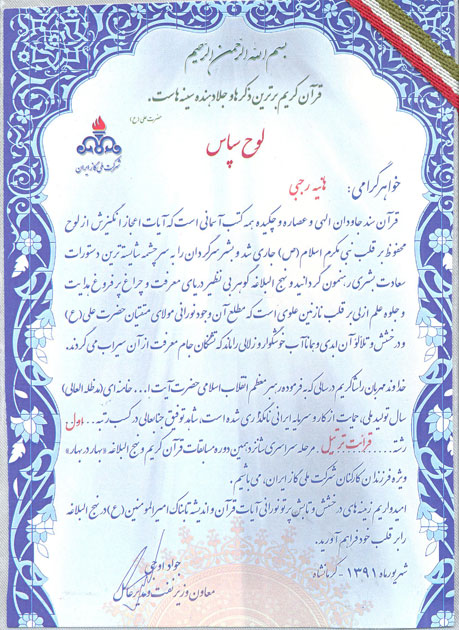 بسم الله الرحمن الرحیم
قرآن کریم برترین ذکرها و جلادهنده سینه هاست.
حضرت علی (ع)
لوح سپاس
شرکت ملی گاز ایران
خواهر گرامی: هانیه رجبی
قرآن سند جاودان الهی و عصاره و چکیده همه کتب آسمانی است که آیات اعجاز انگیزش از لوح
محفوظ بر قلب نبی مکرم اسلام (ص) جاری شد و بشر سرگردان را به سرچشمه شایسته ترین دستورات
سعادت بشری رهنمون گردانید و نهج البلاغه گوهر بی نظیر دریای معرفت و چراغ پر فروغ هدایت
و جلوه علم ازلی بر قلب نازنین علوی است که مطلع آن وجود نورانی مولای متقیان حضرت علی (ع)
و درخشش و تلالو آن ابدی و همانا آب خوشگوار و زلالی را ماند که تشنگان جام معرفت از آن سیراب می گردند.
خداوند مهربان را شاکریم در سالی که به فرموده رهبر معظم انقلاب اسلامی حضرت آیت ا... خامنه ای (مدظله العالی)
سال تولید ملی، حمایت از کار و سرمایه ایرانی نامگذاری شده است، شاهد توفیق جنابعالی در کسب رتبه.. اول
رشته.... قرائت ترتیل. مرحله سراسری شانزدهمین دوره مسابقات قرآن کریم و نهج البلاغه «بهار در بهار»
ویژه فرزندان کارکنان شرکت ملی گاز ایران، می باشیم.
امیدواریم زمینه های درخشش و تابش پرتو نورانی آیات قرآن و اندیشه تابناک امیرالمومنین (ع) در نهج البلاغه
را بر قلب خود فراهم آورید.
شهریور ماه ۱۳۹۱ - کرمانشاه
جواد اوجی
معاون وزیر نفت و مدیرعامل